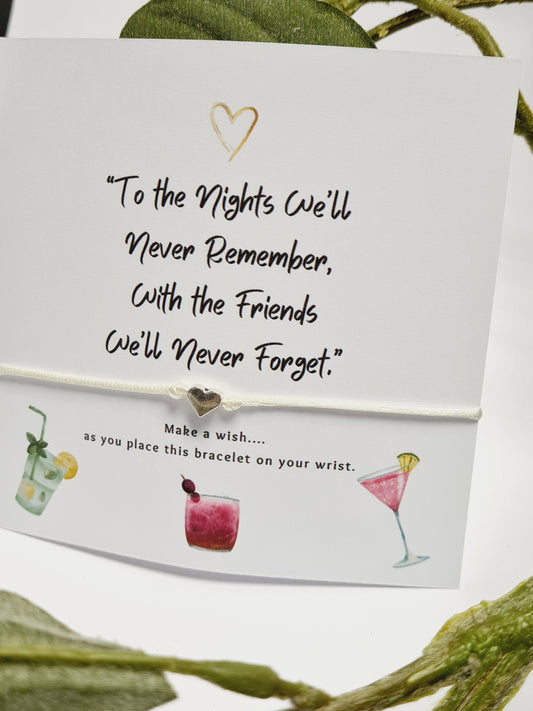 “To the Nights We'll
Never Remember,
With the Friends
We'll Never Forget.”
Make a wish....
as you place this bracelet on your wrist.